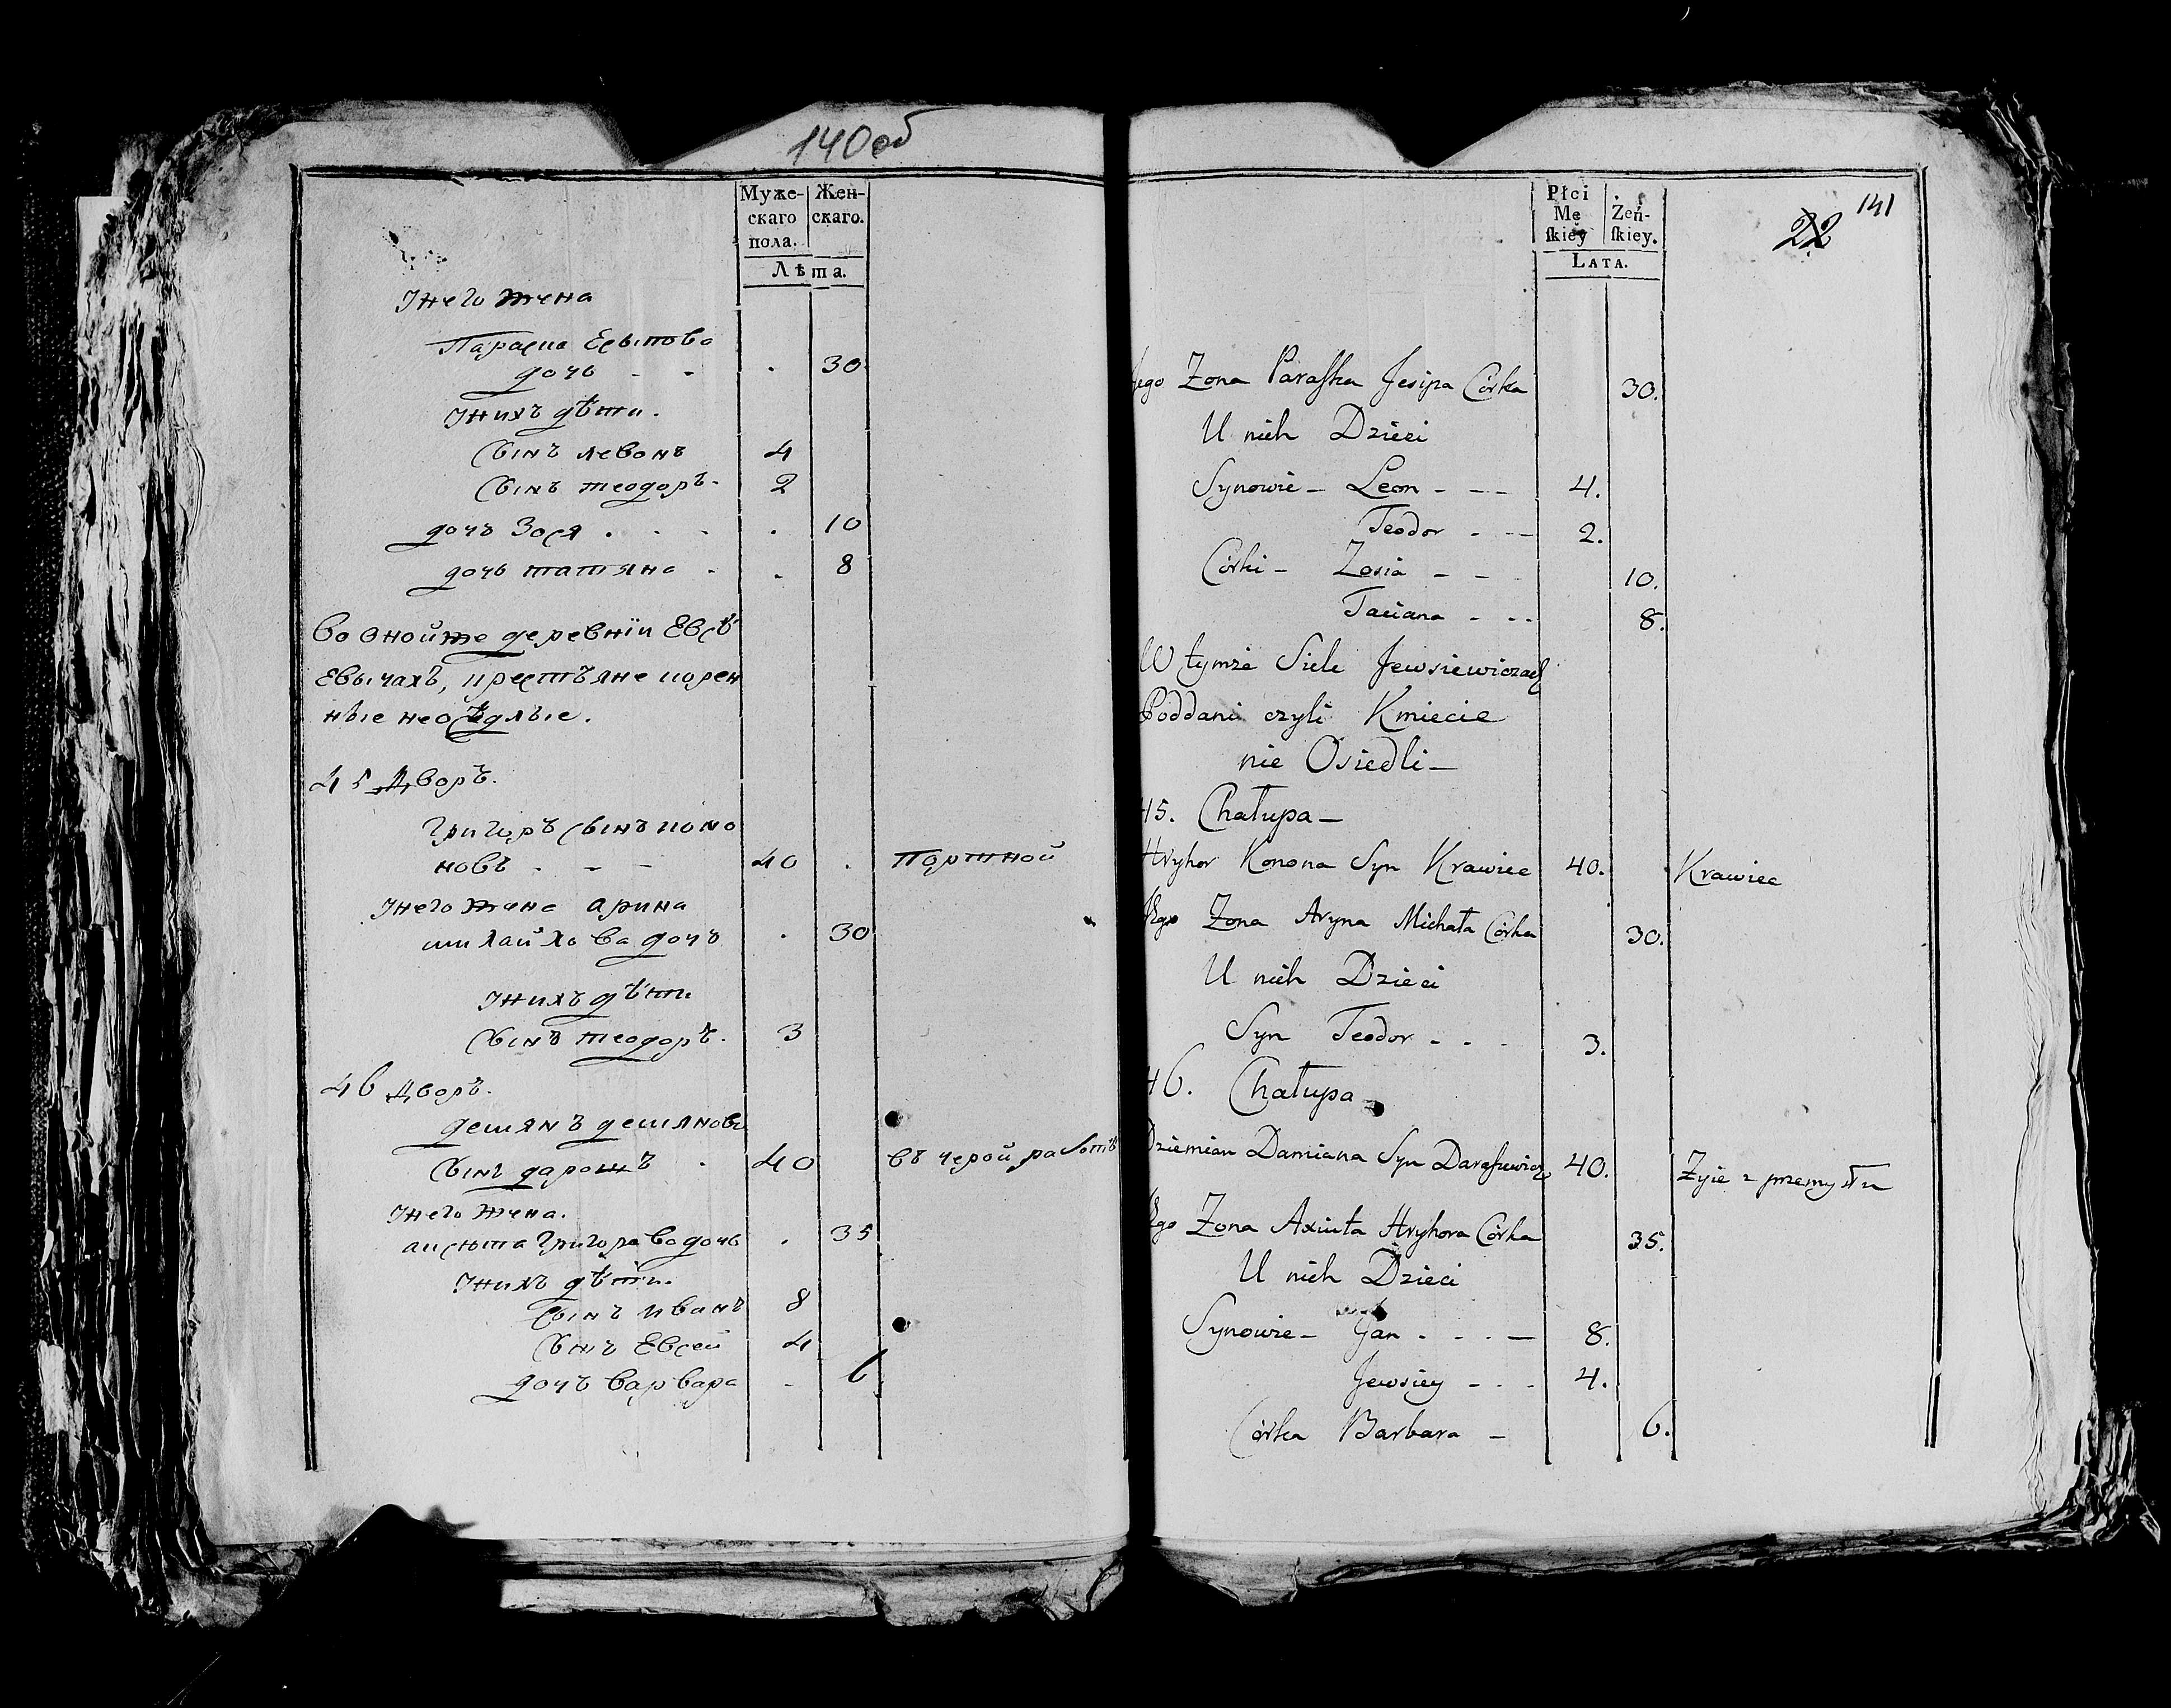 140 об
Муже-
скаго
пола.
Жен-
скаго.
Лѣта.
Унего жена
Параска Есыпова
дочь - - . 30
Унихъ дѣти.
Сынъ левонъ 4
Сынъ теодоръ - 2
дочъ Зося . - - . 10
дочь татяна . . 8
Во оной же деревніи Евсѣ
евычахъ, крестъяне корен
ные неосѣдлые.
45 Дворъ.
Григоръ сынъ коно
новъ . - - 40 . Портной
Унего жена арина
михайлова дочъ . 30
Унихъ дѣти
Сынъ теодоръ. 3
46 Дворъ.
демянъ демяновъ
Сынъ . 40 въ черой работѣ
Унего жена.
аксюта Григорова дочь . 35
Унихъ дѣти.
Сынъ иванъ 8
Сынъ Евсей 4
дочъ варвара - 6
141
22
Płci
Mę
skiey
Żeń-
skiey.
LATA.
Jego Zona Paraska Jesipa Córka 30.
U nich Dzieci
Synowie - Leon - -- 4.
Teodor - -- 2.
Córki - Zosia - - 10.
Taciana - -- 8.
W tymże Siele Jewsiewiczach
Poddani czyli Kmiecie
nie Osiedli -
45. Chałupa -
Hryhor Konona Syn Krawiec 40. Krawiec
Jego Zona Aryna Michała Córka 30.
U nich Dzieci
Syn Teodor - - - 3.
46. Chałupa
Dziemian Damiana Syn Daraszewicz 40. Żyie z przemysłu
Jego Zona Axiuta Hryhora Córka 35.
U nich Dzieci
Synowie - Jan - - - - 8.
Jewsiey - - - 4.
Córka Barbara - 6.